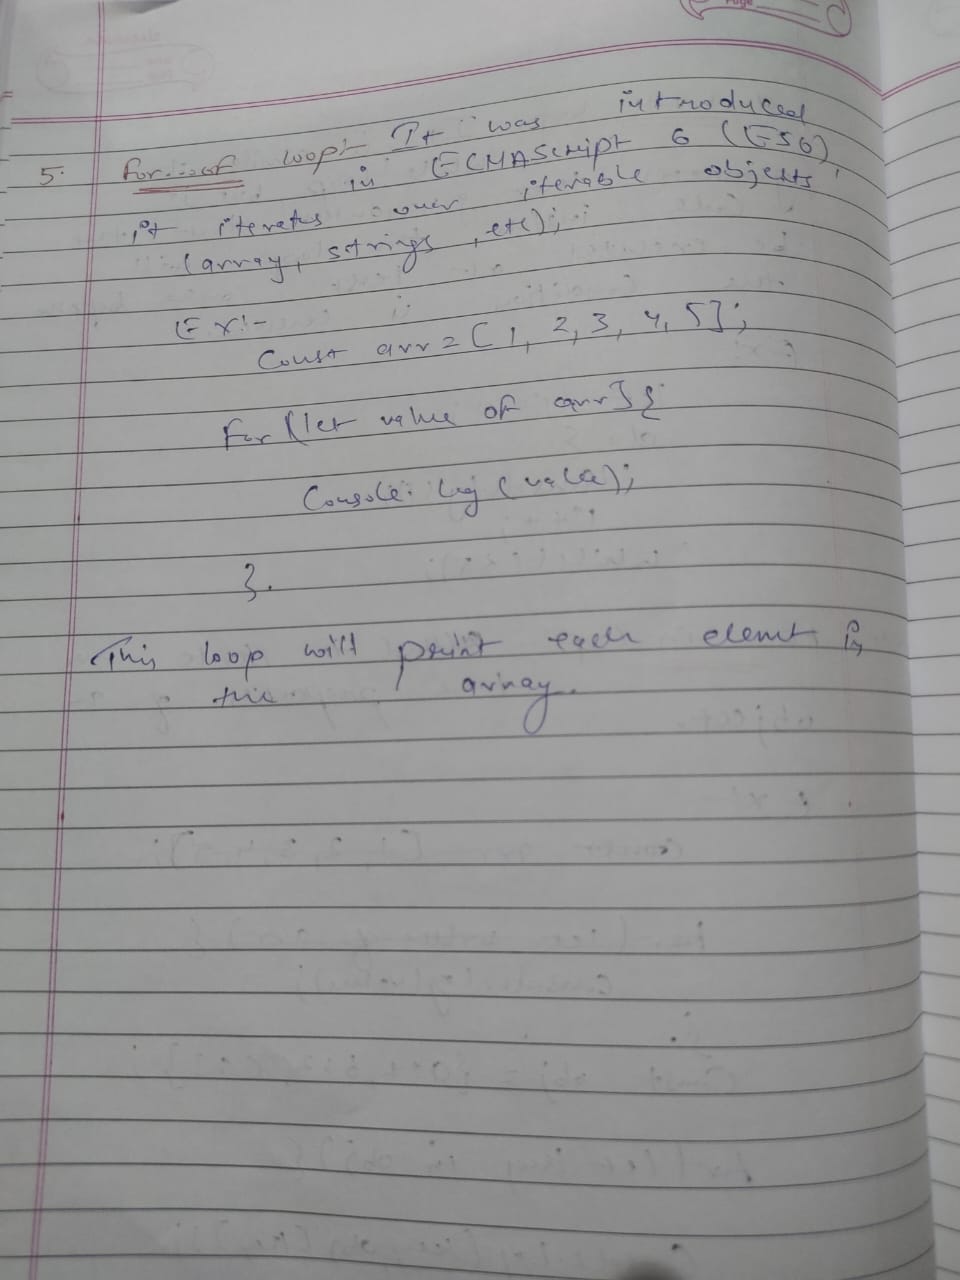 Page
5. for...of loop:- It was introduced
in ECMAScript 6 (ES6)
it iterates over iterable objects
(array, sstrings, etc);
Ex:-
Const arr = [1, 2, 3, 4, 5];
For (let value of arr} {
Console. log (value);
}.
This loop will print each elemt in
the array.